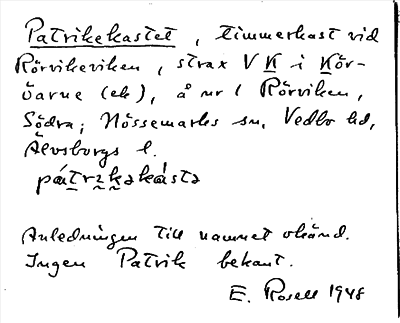 Patrikekastet, timmerkast vid
Rörvikeviken, strax V K i Kör-
öarne (ek), å nr 1 Rörviken,
Södra; Nössemarks sn, Vedbo hd,
Älvsborgs l.
pátrıkəkásta
Anledningen till namnet okänd.
Ingen Patrik bekant.
E. Rosell 1948